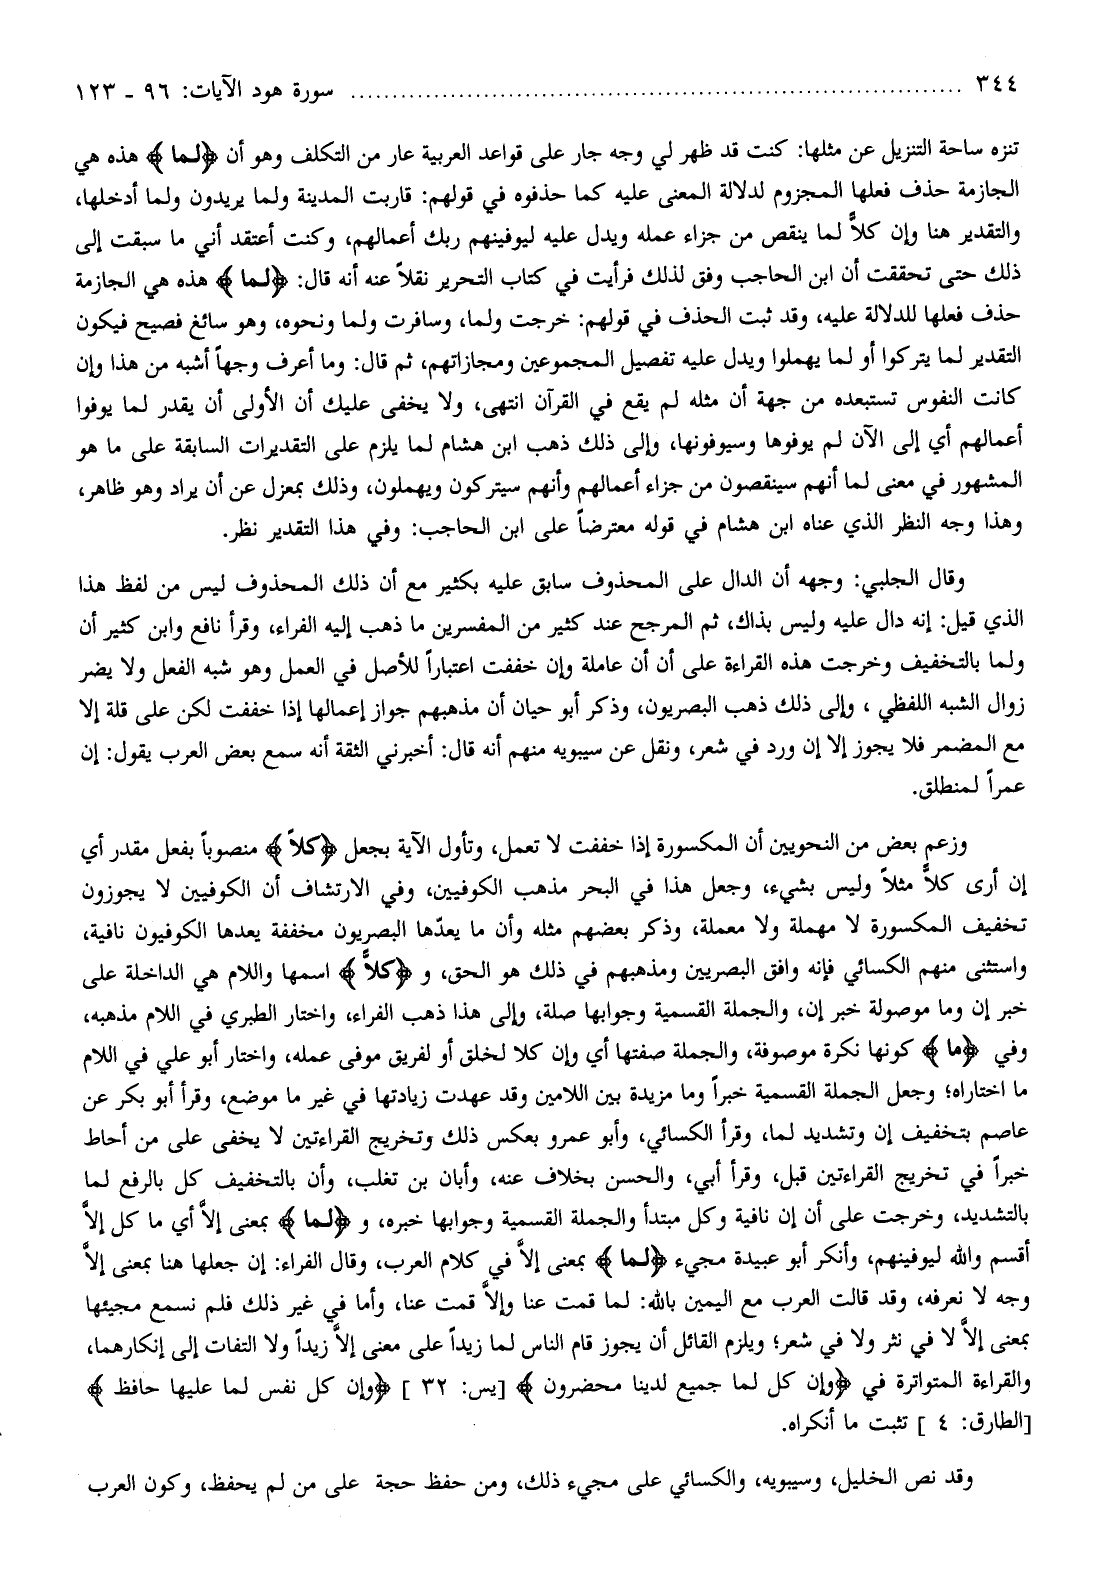 ٣٤٤ ........................................................................ سورة هود الآيات: ٩٦ ـ ١٢٣
تنزه ساحة التنزيل عن مثلها: كنت قد ظهر لي وجه جار على قواعد العربية عار من التكلف وهو أن ﴿لما﴾ هذه هي
الجازمة حذف فعلها المجزوم لدلالة المعنى عليه كما حذفوه في قولهم: قاربت المدينة ولما يريدون ولما أدخلها،
والتقدير هنا وإن كلاًّ لما ينقص من جزاء عمله ويدل عليه ليوفينهم ربك أعمالهم، وكنت أعتقد أني ما سبقت إلى
ذلك حتى تحققت أن ابن الحاجب وفق لذلك فرأيت في كتاب التحرير نقلاً عنه أنه قال: ﴿لما﴾ هذه هي الجازمة
حذف فعلها للدلالة عليه، وقد ثبت الحذف في قولهم: خرجت ولما، وسافرت ولما ونحوه، وهو سائغ فصيح فيكون
التقدير لما يتركوا أو لما يهملوا ويدل عليه تفصيل المجموعين ومجازاتهم، ثم قال: وما أعرف وجهاً أشبه من هذا وإن
كانت النفوس تستبعده من جهة أن مثله لم يقع في القرآن انتهى، ولا يخفى عليك أن الأولى أن يقدر لما يوفوا
أعمالهم أي إلى الآن لم يوفوها وسيوفونها، وإلى ذلك ذهب ابن هشام لما يلزم على التقديرات السابقة على ما هو
المشهور في معنى لما أنهم سينقصون من جزاء أعمالهم وأنهم سيتركون ويهملون، وذلك بمعزل عن أن يراد وهو ظاهر،
وهذا وجه النظر الذي عناه ابن هشام في قوله معترضاً على ابن الحاجب: وفي هذا التقدير نظر.
وقال الجلبي: وجهه أن الدال على المحذوف سابق عليه بكثير مع أن ذلك المحذوف ليس من لفظ هذا
الذي قيل: إنه دال عليه وليس بذاك، ثم المرجح عند كثير من المفسرين ما ذهب إليه الفراء، وقرأ نافع وابن كثير أن
ولما بالتخفيف وخرجت هذه القراءة على أن أن عاملة وإن خففت اعتباراً للأصل في العمل وهو شبه الفعل ولا يضر
زوال الشبه اللفظي ، وإلى ذلك ذهب البصريون، وذكر أبو حيان أن مذهبهم جواز إعمالها إذا خففت لكن على قلة إلا
مع المضمر فلا يجوز إلا إن ورد في شعر، ونقل عن سيبويه منهم أنه قال: أخبرني الثقة أنه سمع بعض العرب يقول: إن
عمراً لمنطلق.
وزعم بعض من النحويين أن المكسورة إذا خففت لا تعمل، وتأول الآية بجعل ﴿كلاً﴾ منصوباً بفعل مقدر أي
إن أرى كلاًّ مثلاً وليس بشيء، وجعل هذا في البحر مذهب الكوفيين، وفي الارتشاف أن الكوفيين لا يجوزون
تخفيف المكسورة لا مهملة ولا معملة، وذكر بعضهم مثله وأن ما يعدّها البصريون مخففة يعدها الكوفيون نافية،
واستثنى منهم الكسائي فإنه وافق البصريين ومذهبهم في ذلك هو الحق، و ﴿كلاًّ﴾ اسمها واللام هي الداخلة على
خبر إن وما موصولة خبر إن، والجملة القسمية وجوابها صلة، وإلى هذا ذهب الفراء، واختار الطبري في اللام مذهبه،
وفي ﴿ما﴾ كونها نكرة موصوفة، والجملة صفتها أي وإن كلا لخلق أو لفريق موفى عمله، واختار أبو علي في اللام
ما اختاراه؛ وجعل الجملة القسمية خبراً وما مزيدة بين اللامين وقد عهدت زيادتها في غير ما موضع، وقرأ أبو بكر عن
عاصم بتخفيف إن وتشديد لما، وقرأ الكسائي، وأبو عمرو بعكس ذلك وتخريج القراءتين لا يخفى على من أحاط
خبراً في تخريج القراءتين قبل، وقرأ أبي، والحسن بخلاف عنه، وأبان بن تغلب، وأن بالتخفيف كل بالرفع لما
بالتشديد، وخرجت على أن إن نافية وكل مبتدأ والجملة القسمية وجوابها خبره، و ﴿لما﴾ بمعنى إلاَّ أي ما كل إلاَّ
أقسم والله ليوفينهم، وأنكر أبو عبيدة مجيء ﴿لما﴾ بمعنى إلاَّ في كلام العرب، وقال الفراء: إن جعلها هنا بمعنى إلاَّ
وجه لا نعرفه، وقد قالت العرب مع اليمين بالله: لما قمت عنا وإلاَّ قمت عنا، وأما في غير ذلك فلم نسمع مجيئها
بمعنى إلاَّ لا في نثر ولا في شعر؛ ويلزم القائل أن يجوز قام الناس لما زيداً على معنى إلاَّ زيداً ولا التفات إلى إنكارهما،
والقراءة المتواترة في ﴿وإن كل لما جميع لدينا محضرون﴾ [يس: ٣٢ ] ﴿وإن كل نفس لما عليها حافظ﴾
[الطارق: ٤ ] تثبت ما أنكراه.
وقد نص الخليل، وسيبويه، والكسائي على مجيء ذلك، ومن حفظ حجة على من لم يحفظ، وكون العرب